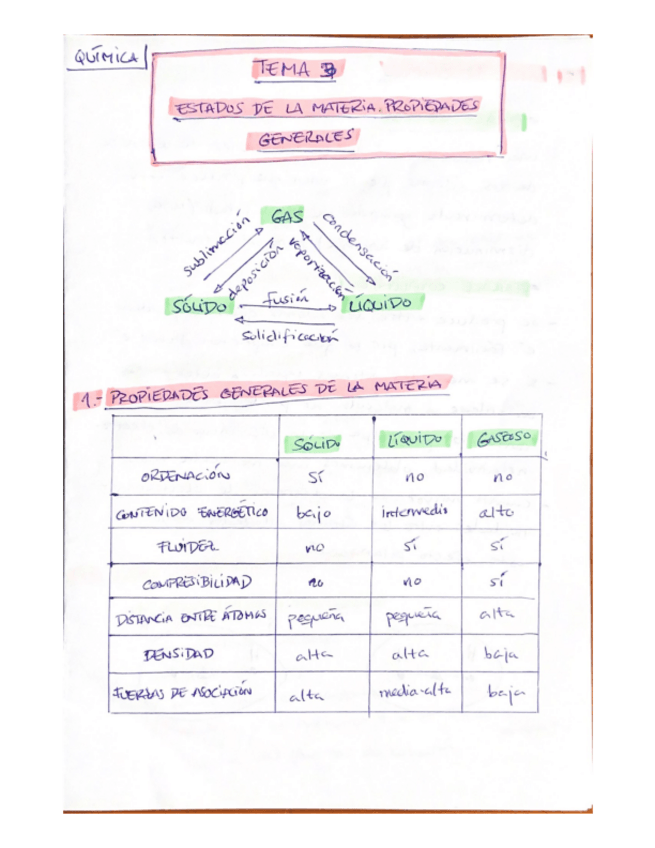 QUÍMICA
TEMA 3
ESTADOS DE LA MATERIA. PROPIEDADES
GENERALES
GAS
sublimación
deposición
vaporización
condensación
SÓLIDO
fusión
LÍQUIDO
solidificación
1.- PROPIEDADES GENERALES DE LA MATERIA
SÓLIDO LÍQUIDO GASEOSO
ORDENACIÓN SÍ no no
CONTENIDO ENERGÉTICO bajo intermedio alto
FLUIDEZ no Sí sí
COMPRESIBILIDAD no no sí
DISTANCIA ENTRE ÁTOMOS pequeña pequeña alta
DENSIDAD alta alta baja
FUERZAS DE ASOCIACIÓN alta media-alta baja